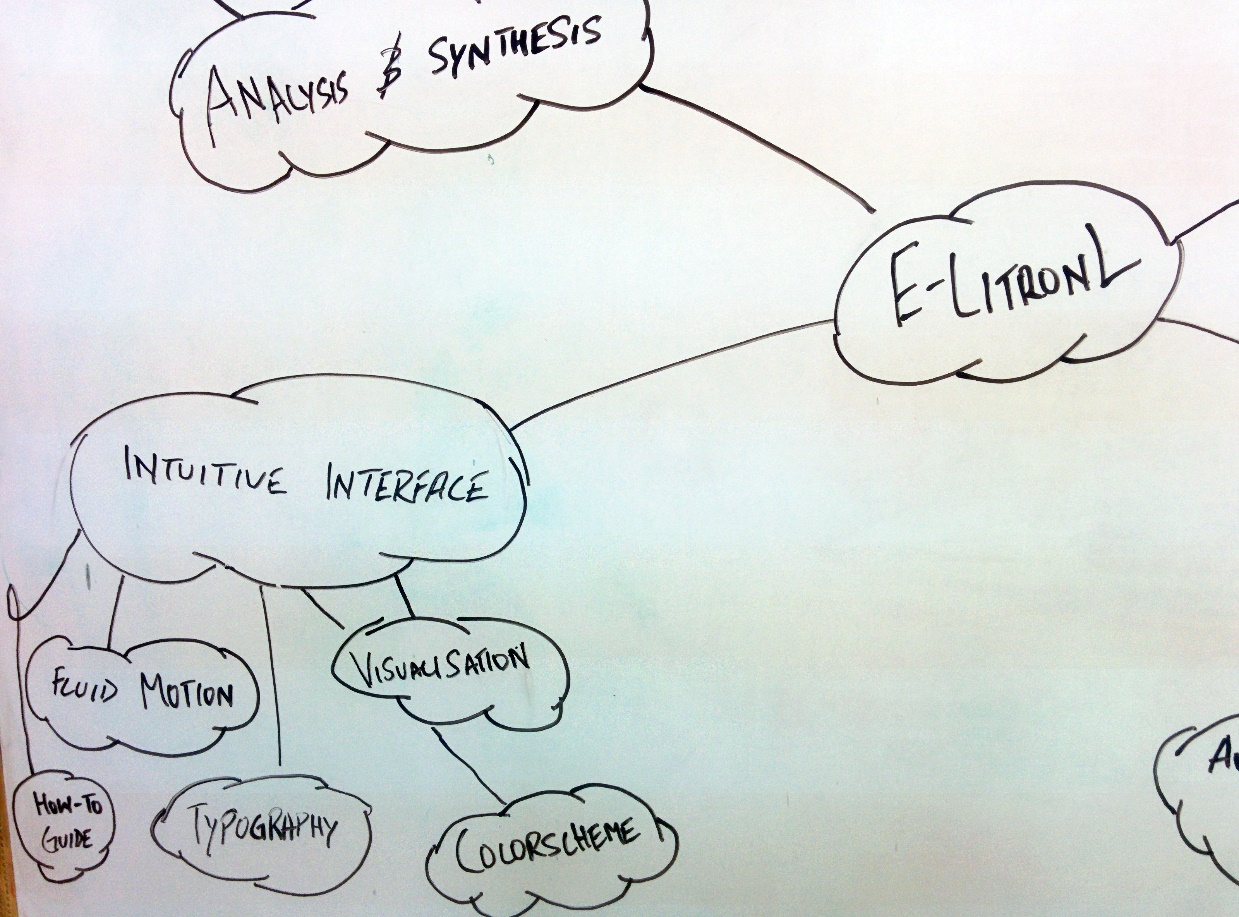 ANALYSIS & SYNTHESIS
E-LITRONL
INTUITIVE INTERFACE
VISUALISATION
FLUID MOTION
HOW-TO
GUIDE
TYPOGRAPHY
COLORSCHEME